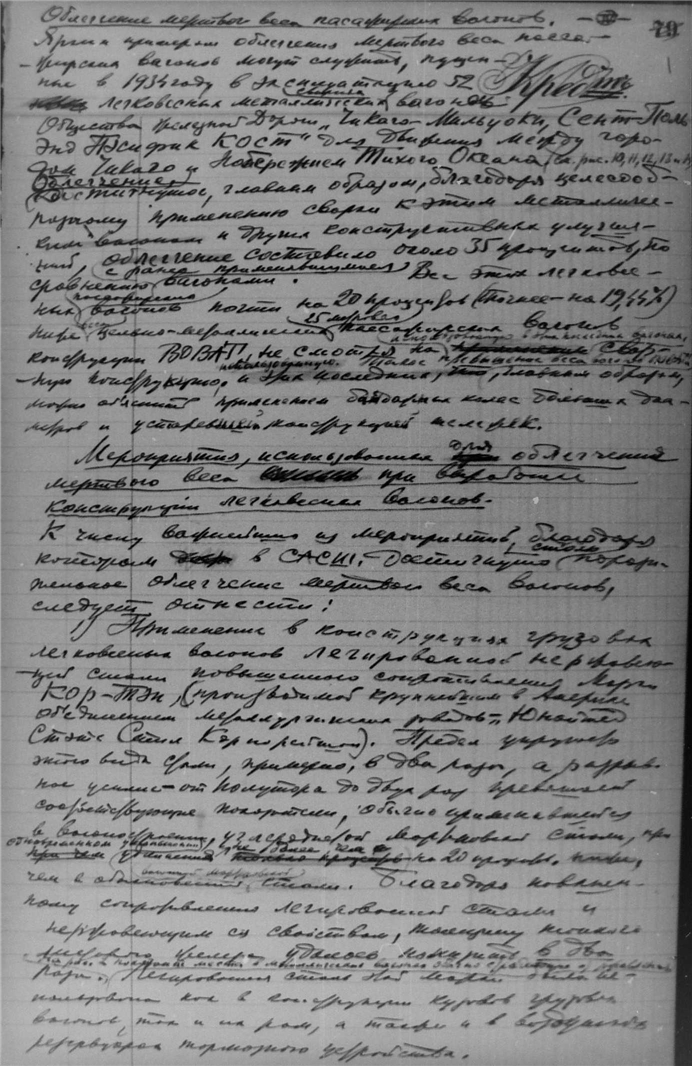 Облегчение мертвого веса пасажирских вагонов. 79
Ярким примером облегчения мертвого веса пасса-
жирских вагонов могут служить, пущен-
ные в 1934 году в эксплуатацию 52
легковесных металлических вагонов
Общества Железной Дороги "Чикаго-Мильуоки, Сент-Поль
энд Пэсифик Кост" для движения между горо-
дом Чикаго и Побережием Тихого Океана (см. рис. 10, 11, 12, 13 и
Облегчение
достигнутое, главным образом, благодаря целесооб-
разному применению сварки к этим металличе-
ским вагонам и других конструктивных улучше-
ний, облегчение составило около 35 процентов, по
сравнению с ранее применявшимися вагонами. Вес этих легковес-
ных вагонов почти на 20 процентов (точнее-на 19,44%)
ниже цельно-металлических пассажирских вагонов
конструкции ВОВАТ, не смотря на
конструкцию. последних, главным образом,
можно объяснить применением бандажных колес больших диа-
метров и устаревшей конструкцией тележек.
Мероприятия, использованные для облегчения
мертвого веса при выработке
конструкций легковесных вагонов.
К числу важнейших из мероприятий, благодаря
которым в САСШ. достигнуто столь порази-
тельное облегчение мертвого веса вагонов,
следует отнести:
1) Применение в конструкциях грузовых
легковесных вагонов легированной нержавею-
щей стали повышенного сопротивления марки
КОР-ТЭН, (производимой крупнейшим в Америке
объединением металлургических заводов-"Юнайтед
Стэтс Стил Корпорейшон). Предел упругости
этого вида стали, примерно, в два раза, а разрыв-
ное усилие-от полутора до двух раз превышает
соответствующие показатели, обычно применявшейся
в вагоностроении, углеродистой мартеновской стали, при
на 20 процентов ниже,
чем в обыкновенной стали. Благодаря повышен-
ному сопротивлению легированной стали и
нержавеющим ее свойствам, толщину
удалось понизить в два
раза. Легированная сталь этой марки была ис-
пользована как в конструкции кузовов грузовых
вагонов, так и их рам, а также и в воздушных
резервуарах тормозного устройства.